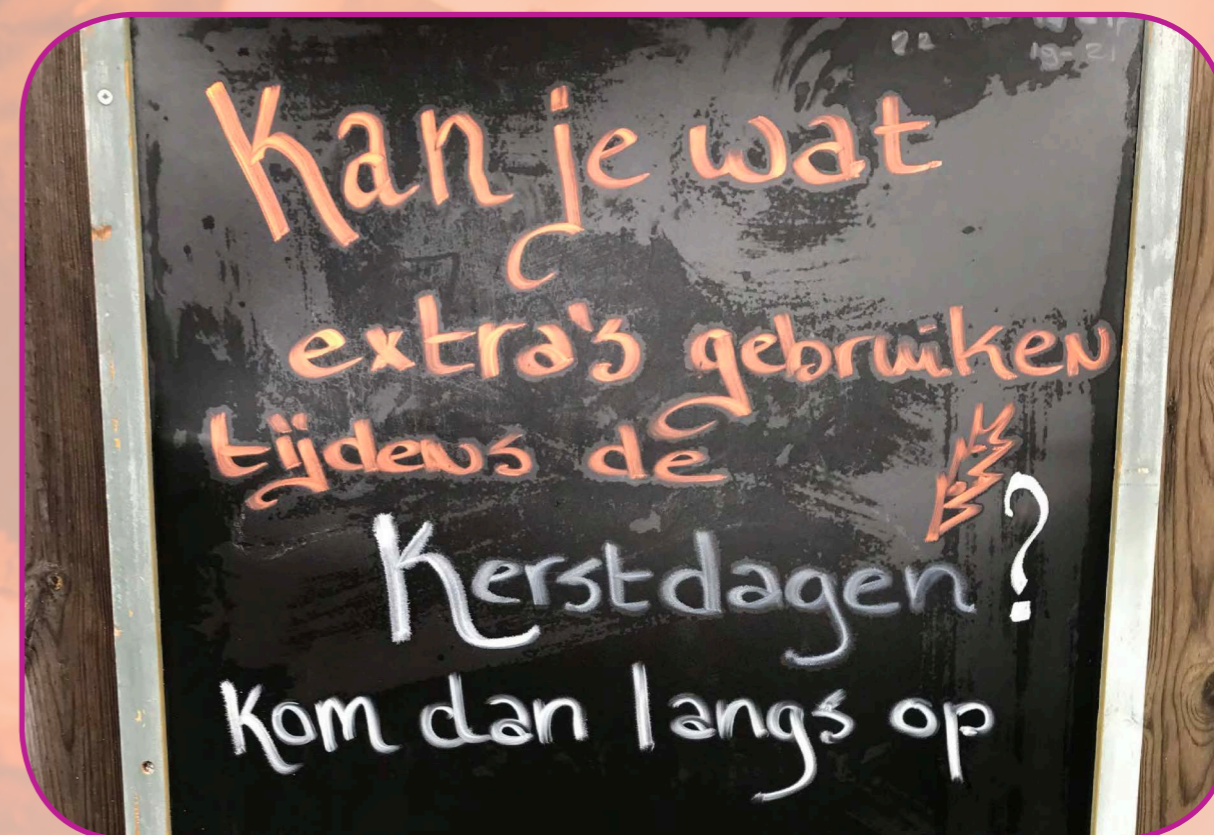 Kan je wat
extra's gebruiken
tijdens de
Kerstdagen ?
Kom dan langs op